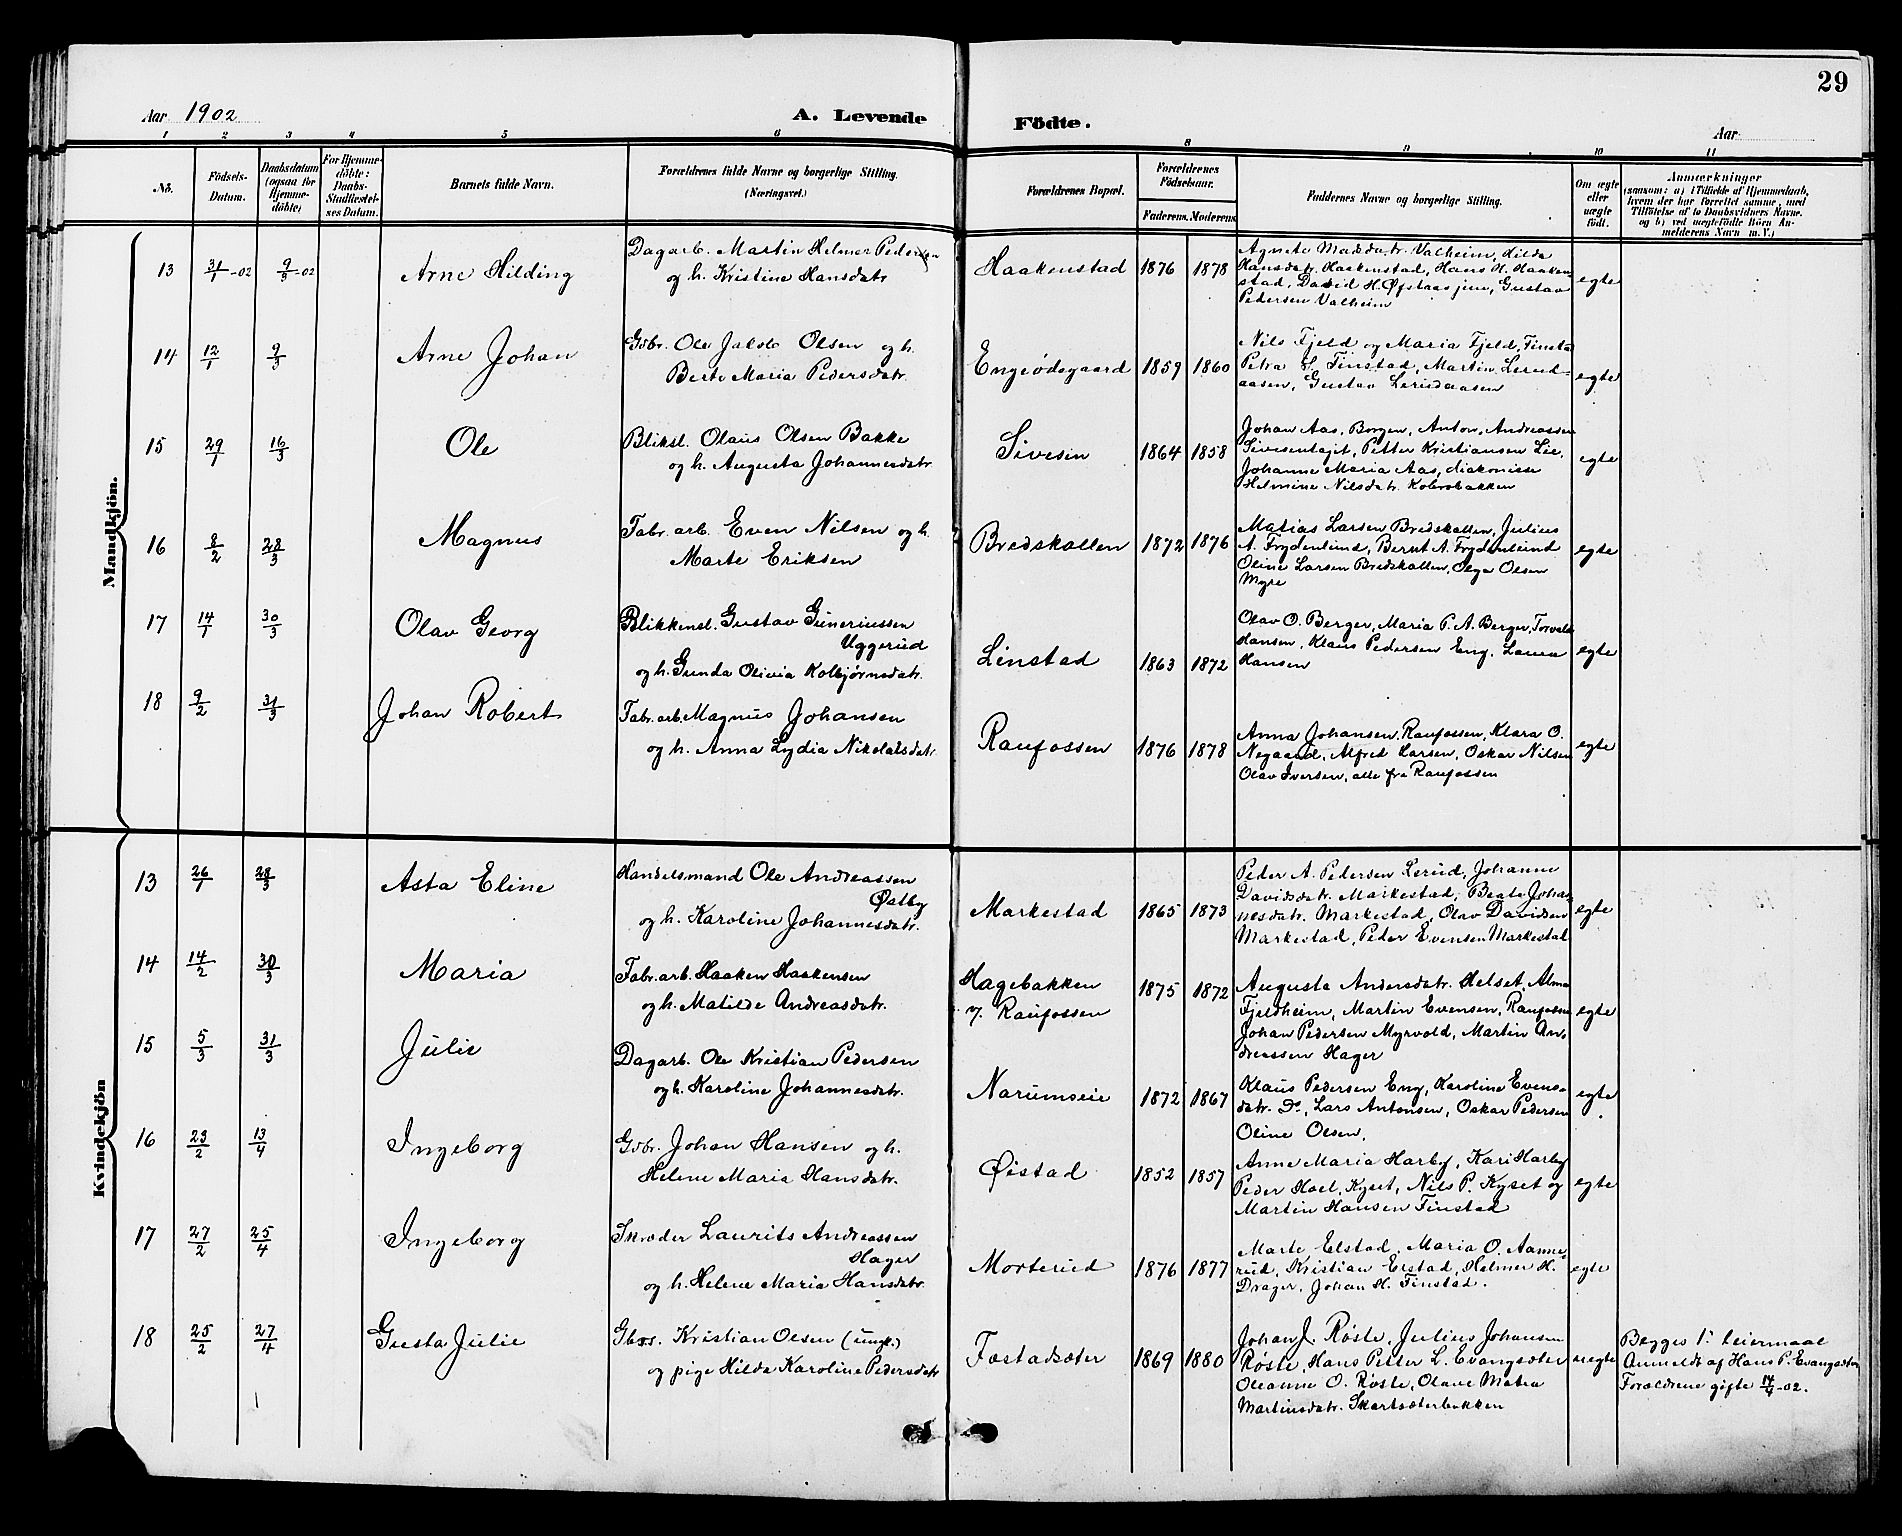 29
Aar 1902
A. Levende
Födte.
Aar
1 2 3 4 5 6 8 9 10 11
No.
Födsels-
Datum.
Daabsdatum
(ogsaa for
Hjemme-
döbte)
For Hjemme-
döbte:
Daabs-
Stadfæstel-
ses Datum.
Barnets fulde Navn.
Forældrenes fulde Navne og borgerlige Stilling.
(Næringsvei.)
Forældrenes Bopæl.
Forældrenes
Födselsaar.
Faderens. Moderens.
Faddernes Navne og borgerlige Stilling.
Om ægte
eller
uægte
födt.
Anmærkninger
(saasom: a) i Tilfælde af Hjemmedaab,
hvem der har forrettet samme, med
Tilföielse af to Daabsvidners Navne.
og b) ved uegtefödte Börn An-
melderens Navn m. V.)
Mandkjön.
13 31/1-02 9/3-02 Arne Hilding
Dagarb. Martin Helmer Pedersen
og h. Kristine Hansdatr.
Haakenstad 1876 1878
Agnete Madsdatr. Valheim, Hilda
Hansdatr. Haakenstad, Hans H. Haaken-
stad, David H. Øfstaasjene, Gustav
Pedersen Valheim
egte
14 12/1 9/3 Arne Johan
Gbr. Ole Jakob Olsen og h.
Berte Maria Pedersdatr.
Engeødegaard 1859 1860
Nils Fjeld og Maria Fjeld, Finsta
Petra Finstad, Martin Lerud-
aasen, Gustav Lerudaasen
egte
15 29/1 16/3 Ole
Bliksl. Olaus Olsen Bakke
og h. Augusta Johannesdatr.
Sivesin 1864 1858
Johan Aas, Borgen, Anton Andreassen
Sivesentajet, Petter Kristiansen Lie,
Johanne Maria Aas, diakonisse
Helmine Nilsdatr. Kolbrobakken
egte
16 8/2 28/3 Magnus
Fabr. arb. Even Nilsen og h.
Marte Eriksen
Bredskallen 1872 1876
Matias Larsen Bredskallen, Julius
A. Frydenlund, Bernt A. Frydenlund
Oline Larsen Bredskallen, Olga Olsen
Myre
egte
17 14/1 30/3 Olav Georg
Blikkensl. Gustav Guneriussen
Uggerud
og h. Gunda Olivia Kolbjørnsdatr.
Linstad 1863 1872
Olav O. Berger, Maria P. A. Berger, Torvald
Hansen, Klaus Pedersen Eng, Laura
Hansen
egte
18 9/2 31/3 Johan Robert
Fabr. arb. Magnus Johansen
og h. Anna Lydia Nikolaisdatr.
Raufossen 1876 1878
Anna Johansen, Raufossen, Klara O.
Nygaard, Alfred Larsen, Oskar Nilsen
Olav Iversen, alle fra Raufossen
egte
Kvindekjön
13 26/1 28/3 Asta Eline
Handelsmand Ole Andreassen
Østby
og h. Karoline Johannesdatr.
Markestad 1865 1873
Peder A. Pedersen Lerud, Johanne
Davidsdatr. Markestad, Beate Johan-
nesdatr. Markestad, Olav Davidsen
Markestad, Peder Evensen Markestad
egte
14 14/2 30/3 Maria
Fabr. arb. Haaken Haakensen
og h. Matilde Andreasdatr.
Hagebakken
v. Raufossen 1875 1872
Augusta Andersdatr. Helset, Alma
Fjeldheim, Martin Evensen, Raufossen
Johan Pedersen Myrvold, Martin An-
dreassen Hager
egte
15 5/3 31/3 Julie
Dagarb. Ole Kristian Pedersen
og h. Karoline Johannesdatr.
Narumseie 1872 1867
Klaus Pedersen Eng, Karoline Evens-
datr. Do., Lars Antonsen, Oskar Pedersen
Oline Olsen.
egte
16 23/2 13/4 Ingeborg
Gbr. Johan Hansen og h.
Helene Maria Hansdatr.
Øistad 1852 1857
Anne Maria Harby, Kari Harby
Peder Hoel, Kyset, Nils P. Kyset og
Martin Hansen Finstad
egte
17 27/2 25/4 Ingeborg
Skræder Laurits Andreassen
Hager
og h. Helene Maria Hansdatr.
Morterud 1876 1877
Marte Elstad, Maria O. Aanne-
rud, Kristian Elstad, Helmer H.
Drager, Johan H. Finstad.
egte
18 25/2 27/4 Gusta Julie
Gbrs. Kristian Olsen (ungk.)
og pige Hilda Karoline Pedersdatr
Fastadsæter 1869 1880
Johan J. Røste, Julius Johansen
Røste, Hans Petter L. Evangsæter
Oleanne O. Røste, Olave Matea
Martinsdatr. Skartsæterbakken
uegte
Begges 1ste Leiermaal
Anmeldt af Hans P. Evangsæter
Forældrene gifte 14/4-02.